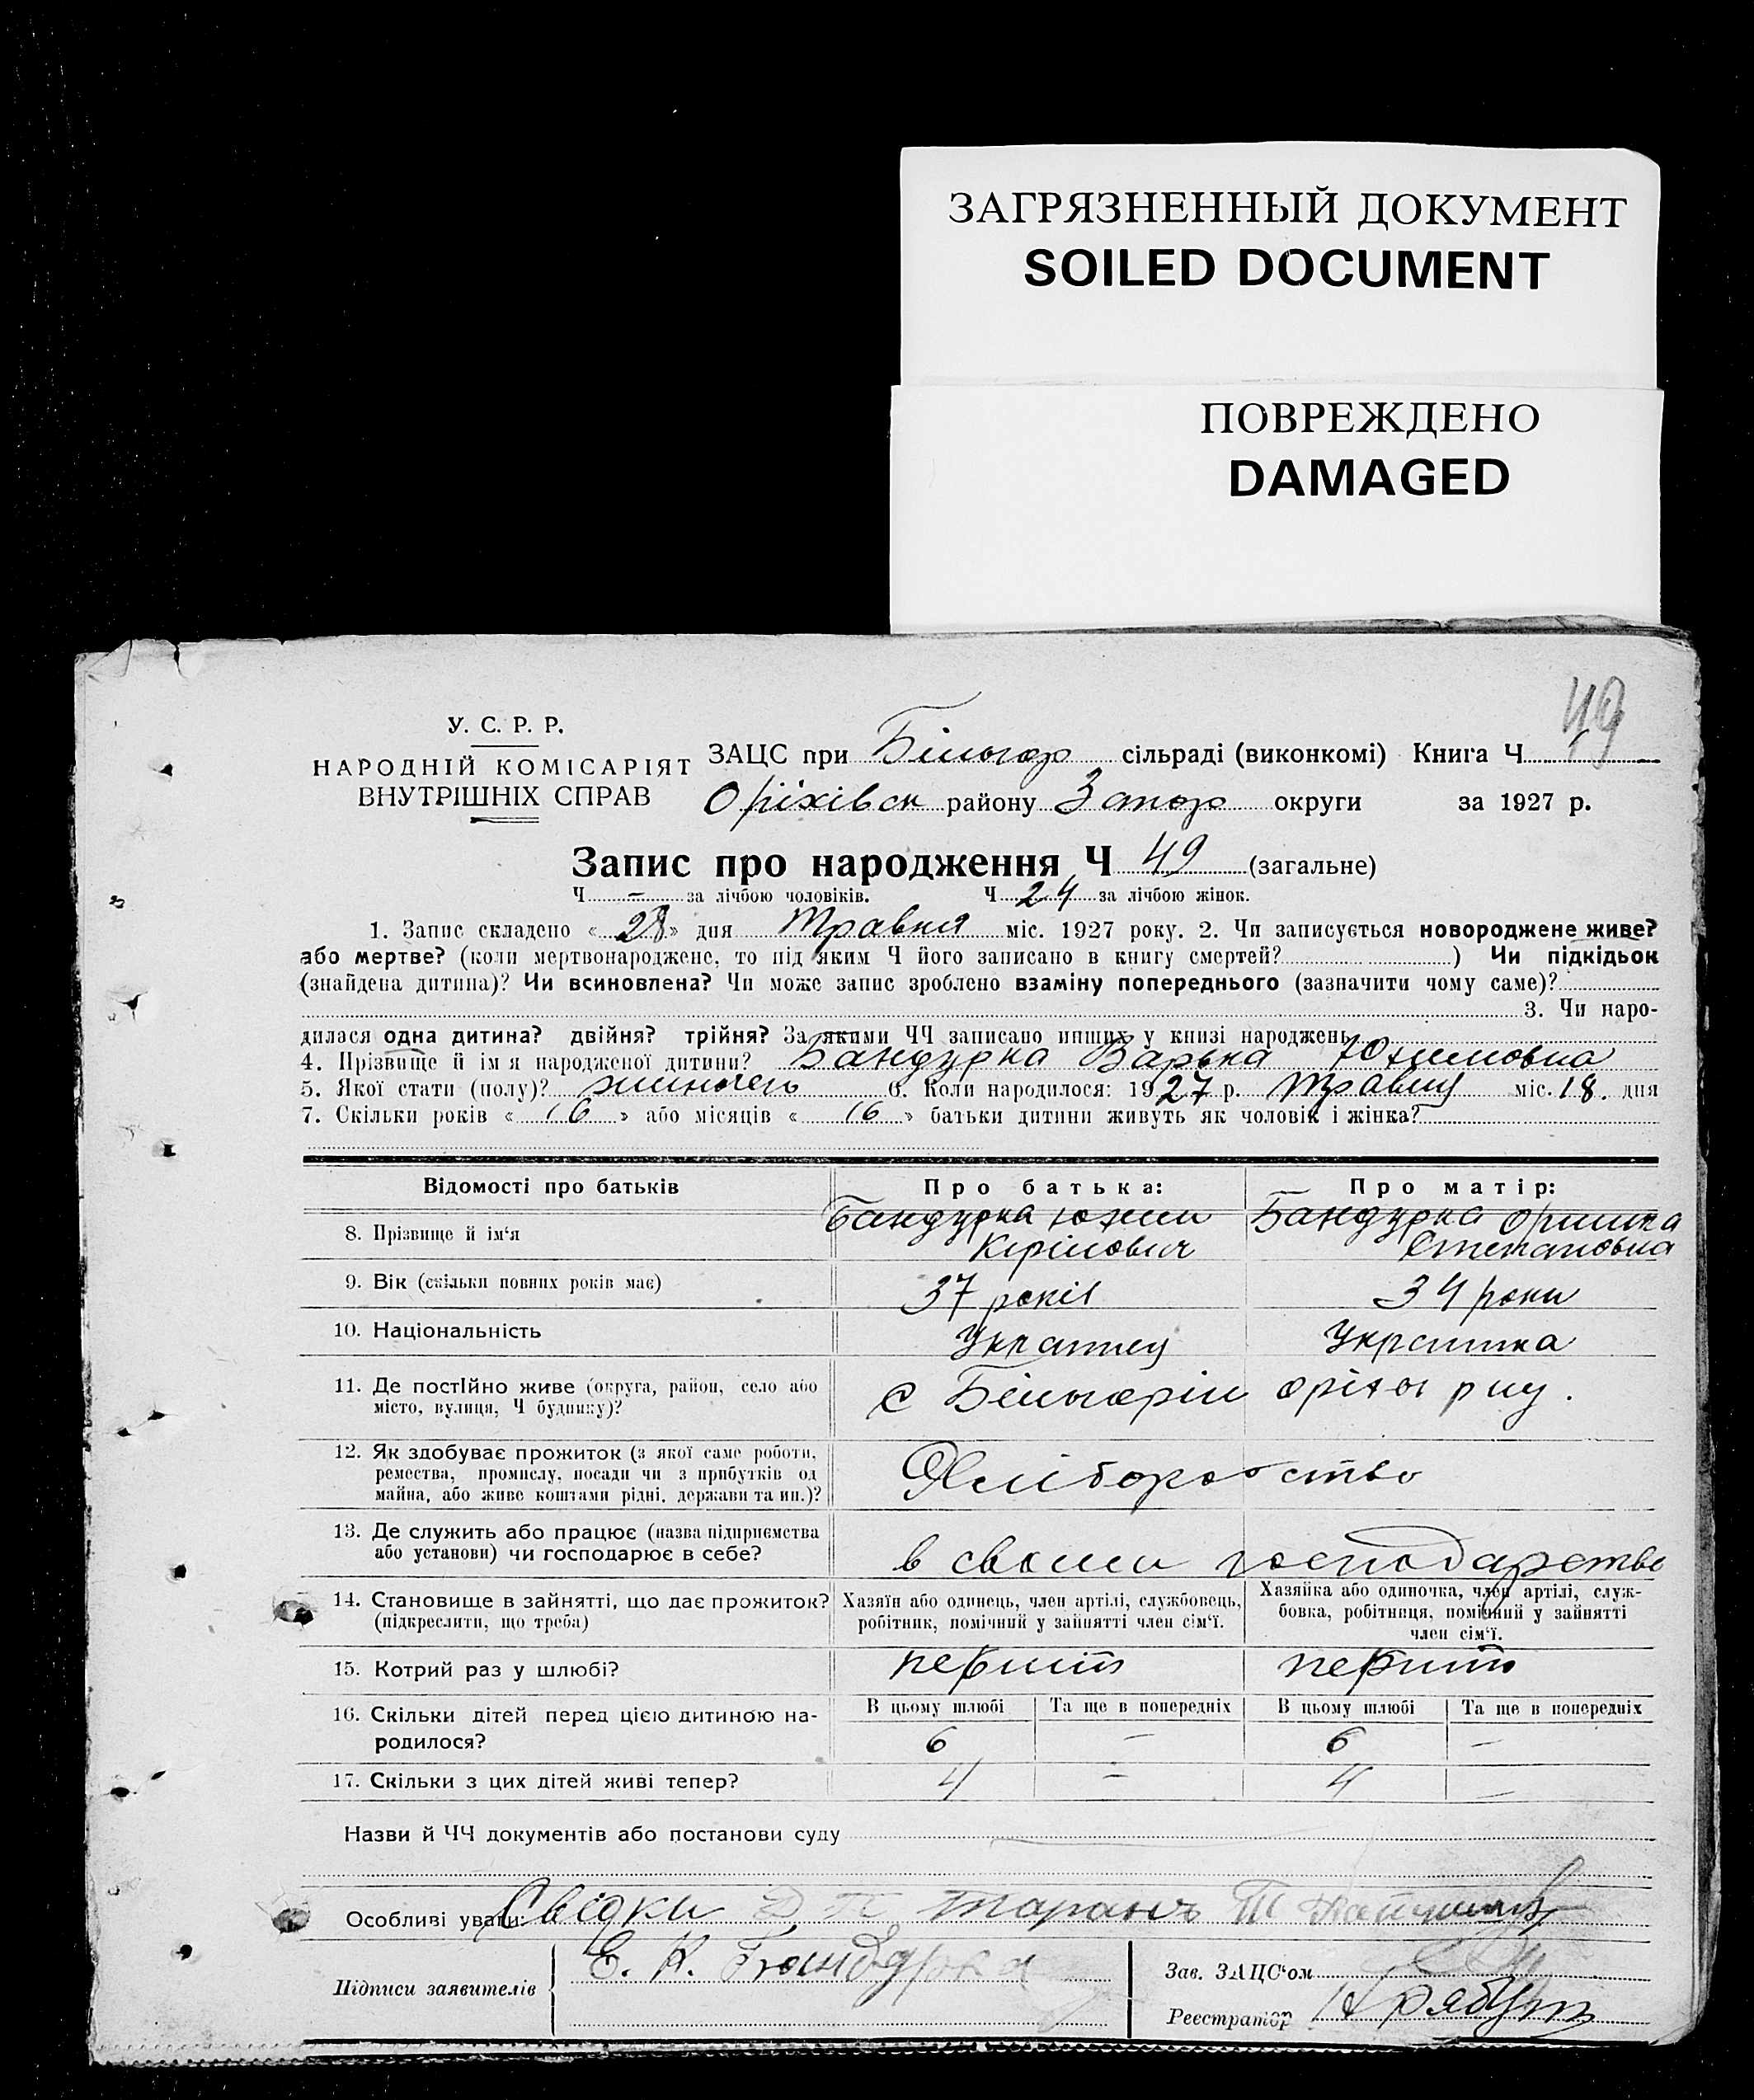 ЗАГРЯЗНЕННЫЙ ДОКУМЕНТ
SOILED DOCUMENT
ПОВРЕЖДЕНО
DAMAGED
49
У. С. Р. Р.
НАРОДНІЙ КОМІСАРІЯТ
ВНУТРІШНІХ СПРАВ
ЗАЦС при Білогор сільраді (виконкомі) Книга Ч 1
Оріхівск району Запор округи за 1927 р.
Запис про народження Ч 49 (загальне)
Ч - за лічбою чоловіків. Ч 24 за лічбою жінок.
1. Запис складено « 28 » дня Травня міс. 1927 року. 2. Чи записується новороджене живе?
або мертве? (коли мертвонароджене, то під яким Ч його записано в книгу смертей? ) Чи підкідьок
(знайдена дитина)? Чи всиновлена? Чи може запис зроблено взаміну попереднього (зазначити чому саме)?
3. Чи наро-
дилася одна дитина? двійня? трійня? За якими ЧЧ записано инших у книзі народжень
4. Прізвище й імя народженої дитини? Бандурка Варька Юхимовна
5. Якої стати (полу)? 6. Коли народилося: 1927 р. Травня міс. 18. дня
7. Скільки років « 16 » або місяців « 16 » батьки дитини живуть як чоловік і жінка?
Відомості про батьків
Про батька:
Про матір:
8. Прізвище й ім'я
Бандурка Юхим
Кірілович
Бандурка Оришка
Степановна
9. Вік (скільки повних років має)
37 років
34 роки
10. Національність
Українец
Українка
11. Де постІйно живе (округа, район, село або
місто, вулиця, Ч будинку)?
с Білогоріи оріхов рну.
12. Як здобуває прожиток (з якої саме роботи,
ремества, промислу, посади чи з прибутків од
майна, або живе коштами рідні, держави та ин.)?
Хліборобство
13. Де служить або працює (назва підприємства
або установи) чи господарює в себе?
в своем господарстве
14. Становище в зайнятті, що дає прожиток?
(підкреслити, що треба)
Хазяїн або одинець, член артілі, службовець,
робітник, помічний у зайнятті член сім'ї.
Хазяйка або одиночка, член артілі, служ-
бовка, робітниця, помічний у зайнятті
член сім'ї.
15. Котрий раз у шлюбі?
первий
первий
16. Скільки дітей перед цією дитиною на-
родилося?
В цьому шлюбі
Та ще в попередніх
В цьому шлюбі
Та ще в попередніх
6 - 6 -
17. Скільки з цих дітей живі тепер?
4 - 4 -
Назви й ЧЧ документів або постанови суду
Особливі уваги: Свідки Д П Таранъ
Підписи заявителів
Е. К. Бандурка
Зав. ЗАЦС'ом
Реєстратор Рябун